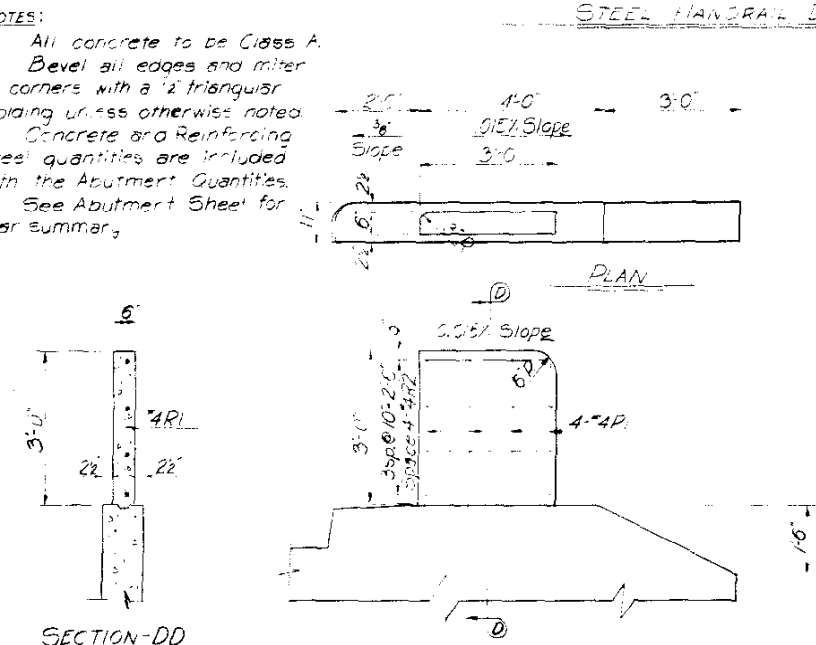 OTES:
All concrete to be Class A.
Bevel all edges and miter
corners with a ½" triangular
olding unless otherwise noted.
Concrete and Reinforcing
eel quantities are included
th the Abutment Quantities.
See Abutment Sheet for
ar summary
STEEL HANDRAIL D
2'-0" 4'-0" 3'-0"
Slope .015% Slope
3'-0"
2½"
11" 6"
2½"
PLAN
D
6"
0.015% Slope
3'-0" #4R1
2½" 2½"
SECTION-DD
3'-0"
3sp.@10"=2'-6"
Space 4-#4R2
6"R
4-#4R1
1'-6"
D